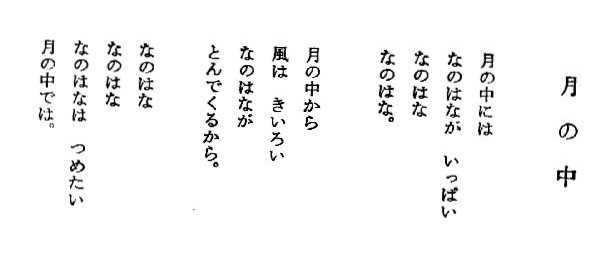 月の中
月の中には
なのはなが　いっぱい
なのはな
なのはな。
月の中から
風は　きいろい
なのはなが
とんでくるから。
なのはな
なのはな
なのはなは　つめたい
月の中では。